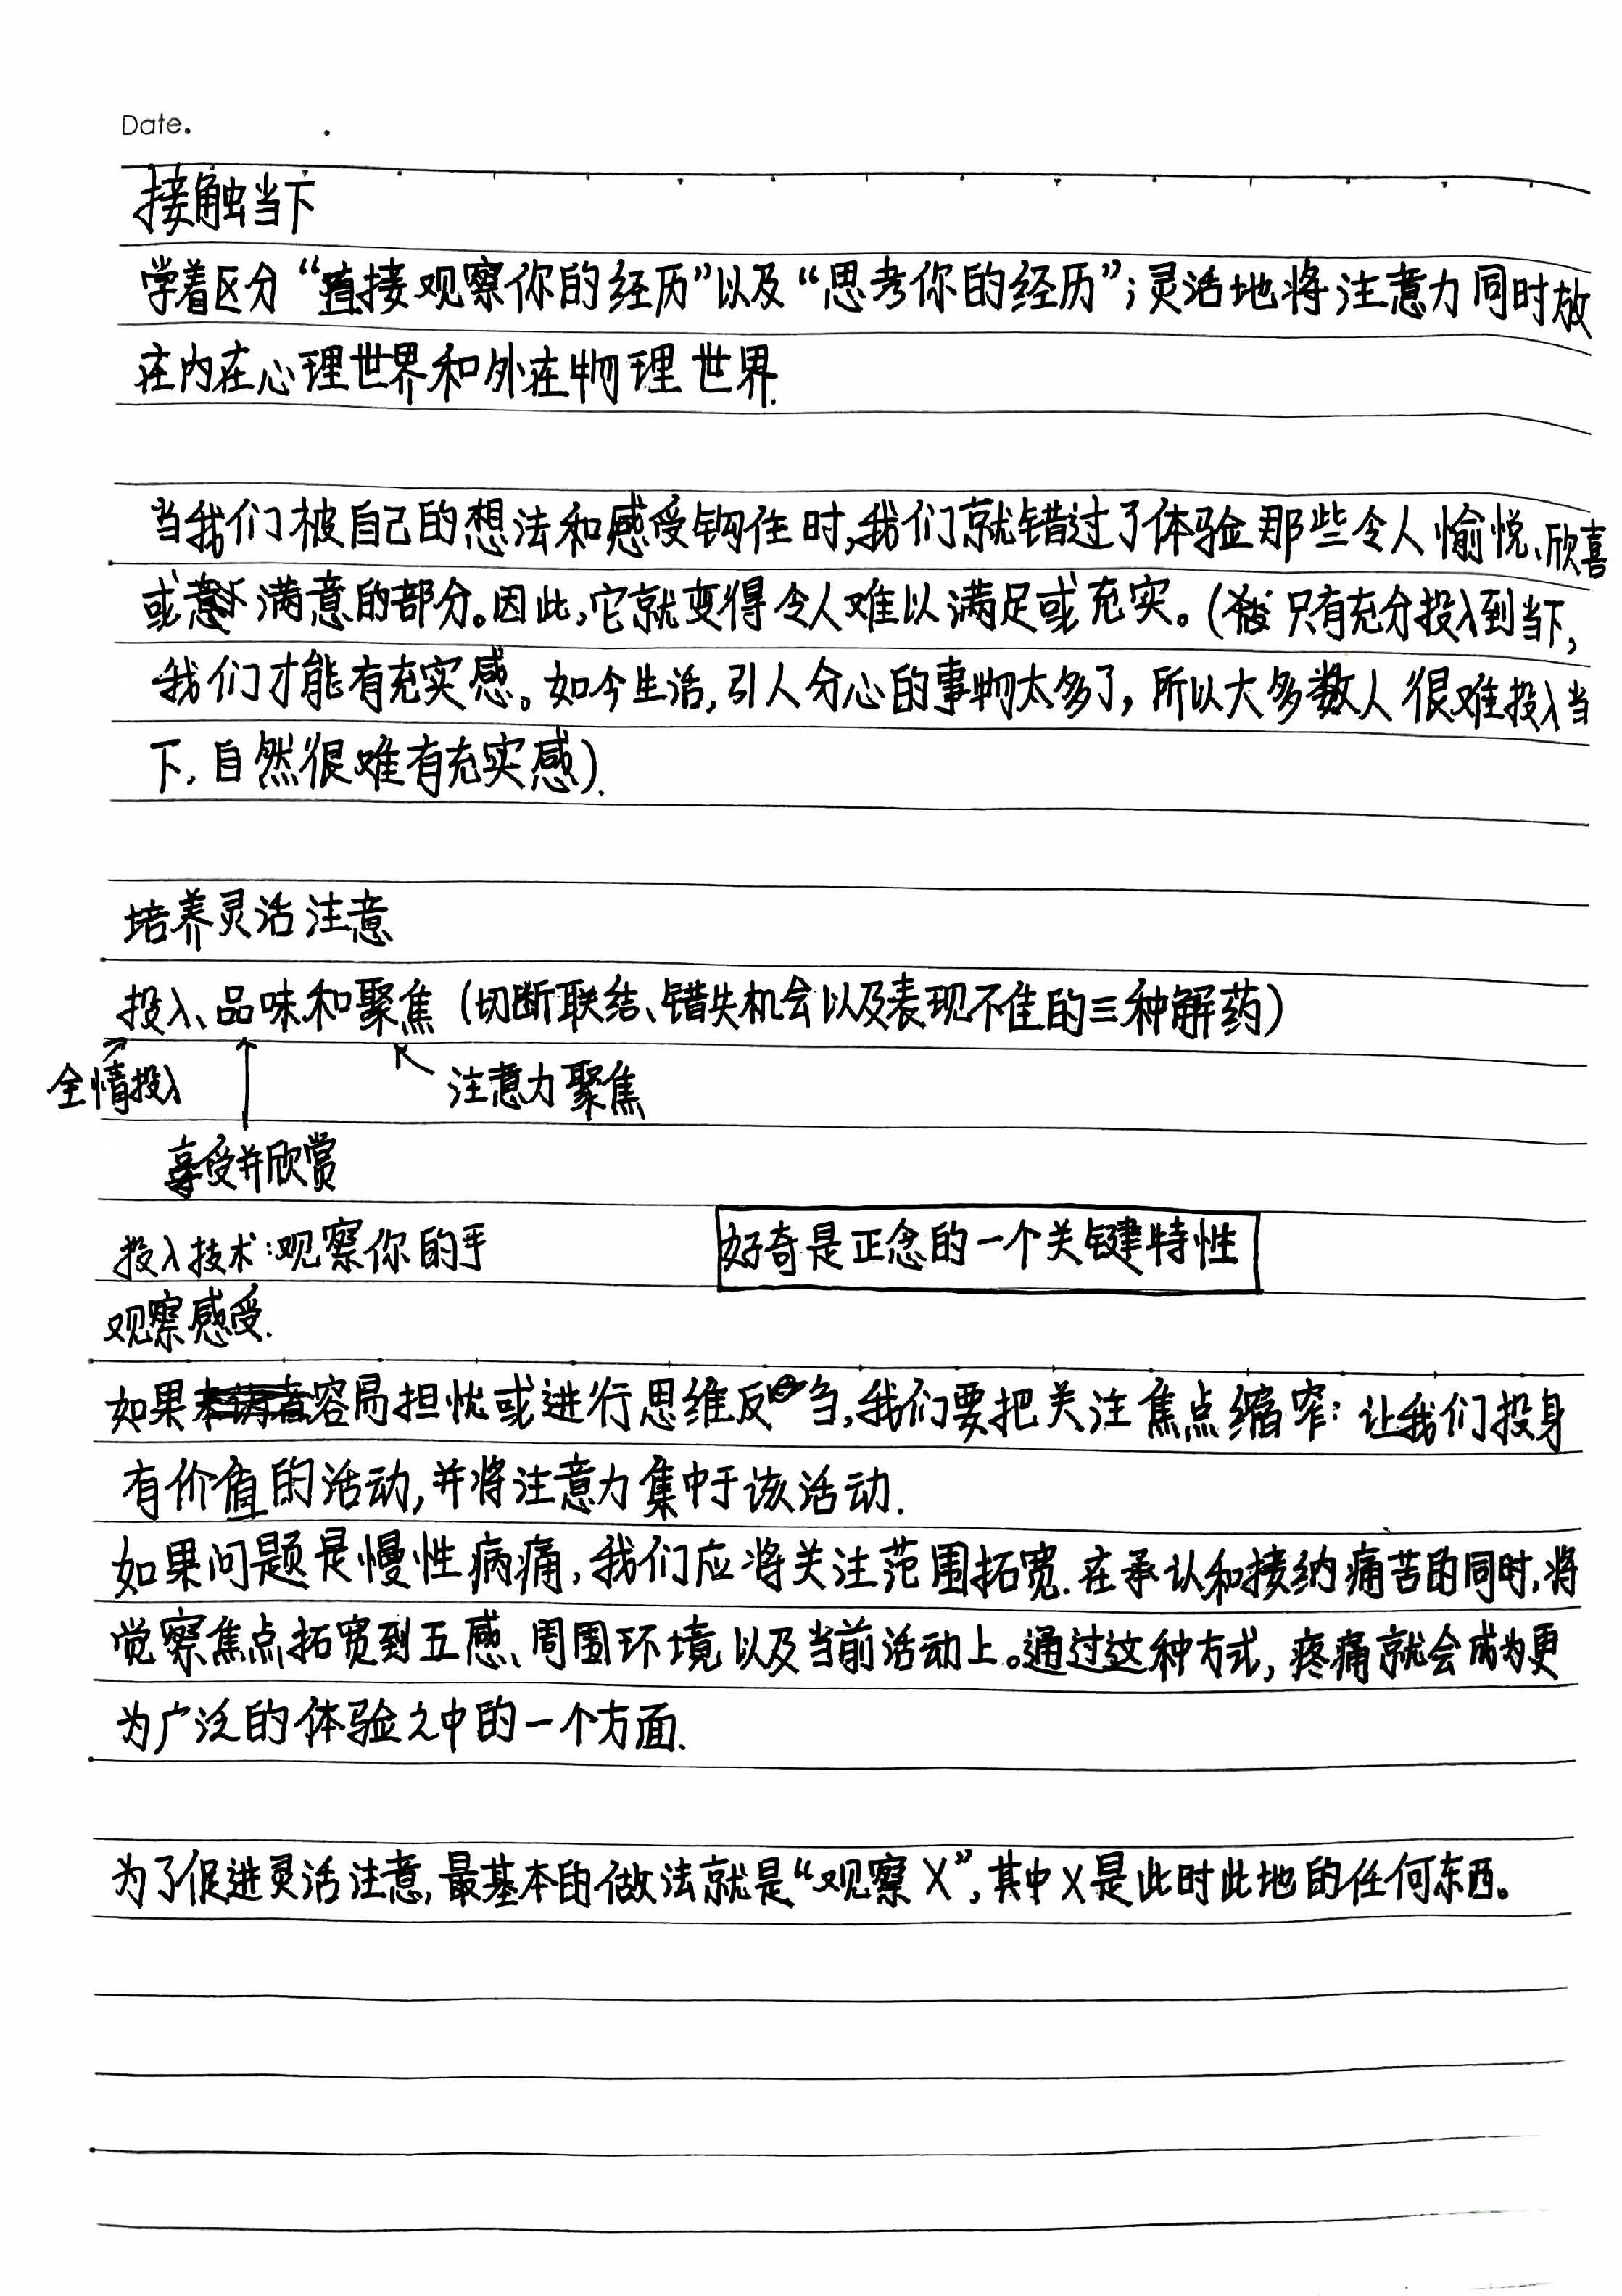 Date.
接触当下
学着区分“直接观察你的经历”以及“思考你的经历”；灵活地将注意力同时放
在内在心理世界和外在物理世界.
当我们被自己的想法和感受钩住时,我们就错过了体验那些令人愉悦、欣喜
或满意的部分。因此,它就变得令人难以满足或充实。(只有充分投入到当下,
我们才能有充实感。如今生活,引人分心的事物太多了,所以大多数人很难投入当
下,自然很难有充实感).
培养灵活注意
投入、品味和聚焦(切断联结、错失机会以及表现不佳的三种解药)
全情投入
注意力聚焦
享受并欣赏
投入技术:观察你的手
好奇是正念的一个关键特性
观察感受.
如果容易担忧或进行思维反刍,我们要把关注焦点缩窄:让我们投身
有价值的活动,并将注意力集中于该活动.
如果问题是慢性病痛,我们应将关注范围拓宽.在承认和接纳痛苦的同时,将
觉察焦点拓宽到五感、周围环境以及当前活动上。通过这种方式,疼痛就会成为更
为广泛的体验之中的一个方面.
为了促进灵活注意,最基本的做法就是“观察X”,其中X是此时此地的任何东西。